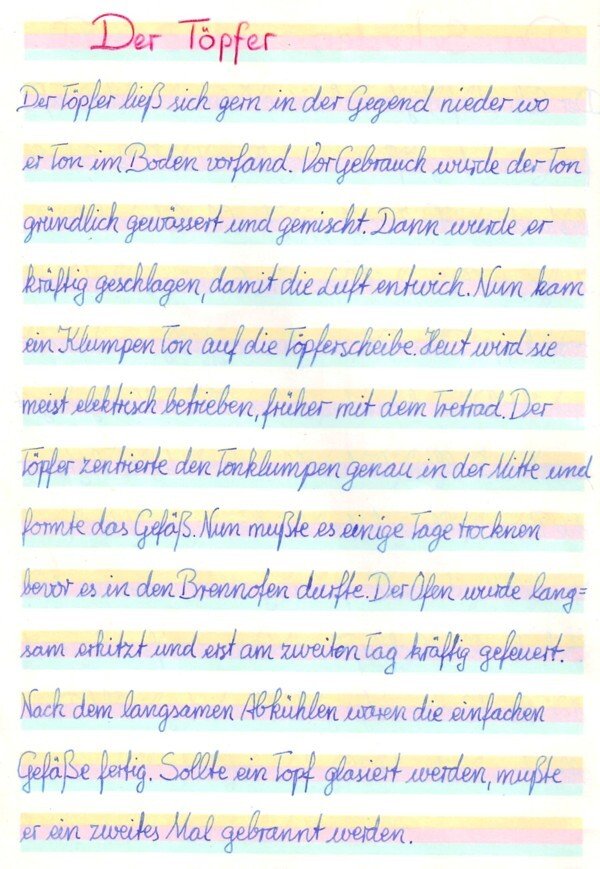 Der Töpfer
Der Töpfer ließ sich gern in der Gegend nieder wo
er Ton im Boden vorfand. Vor Gebrauch wurde der Ton
gründlich gewässert und gemischt. Dann wurde er
kräftig geschlagen, damit die Luft entwich. Nun kam
ein Klumpen Ton auf die Töpferscheibe. Heut wird sie
meist elektrisch betrieben, früher mit dem Tretrad. Der
Töpfer zentrierte den Tonklumpen genau in der Mitte und
formte das Gefäß. Nun mußte es einige Tage trocknen
bevor es in den Brennofen durfte. Der Ofen wurde lang=
sam erhitzt und erst am zweiten Tag kräftig gefeuert.
Nach dem langsamen Abkühlen waren die einfachen
Gefäße fertig. Sollte ein Topf glasiert werden, mußte
er ein zweites Mal gebrannt werden.